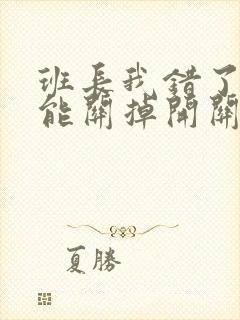 班長我錯了
能關掉開關
夏勝